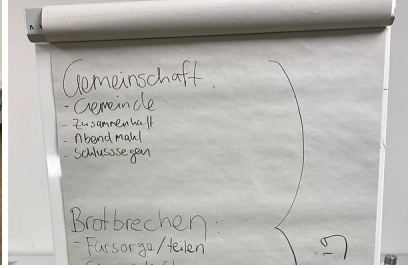 Gemeinschaft:
- Gemeinde
- Zusammenhalt
- Abendmahl
- Schlusssegen
Brotbrechen:
- Fürsorge/teilen